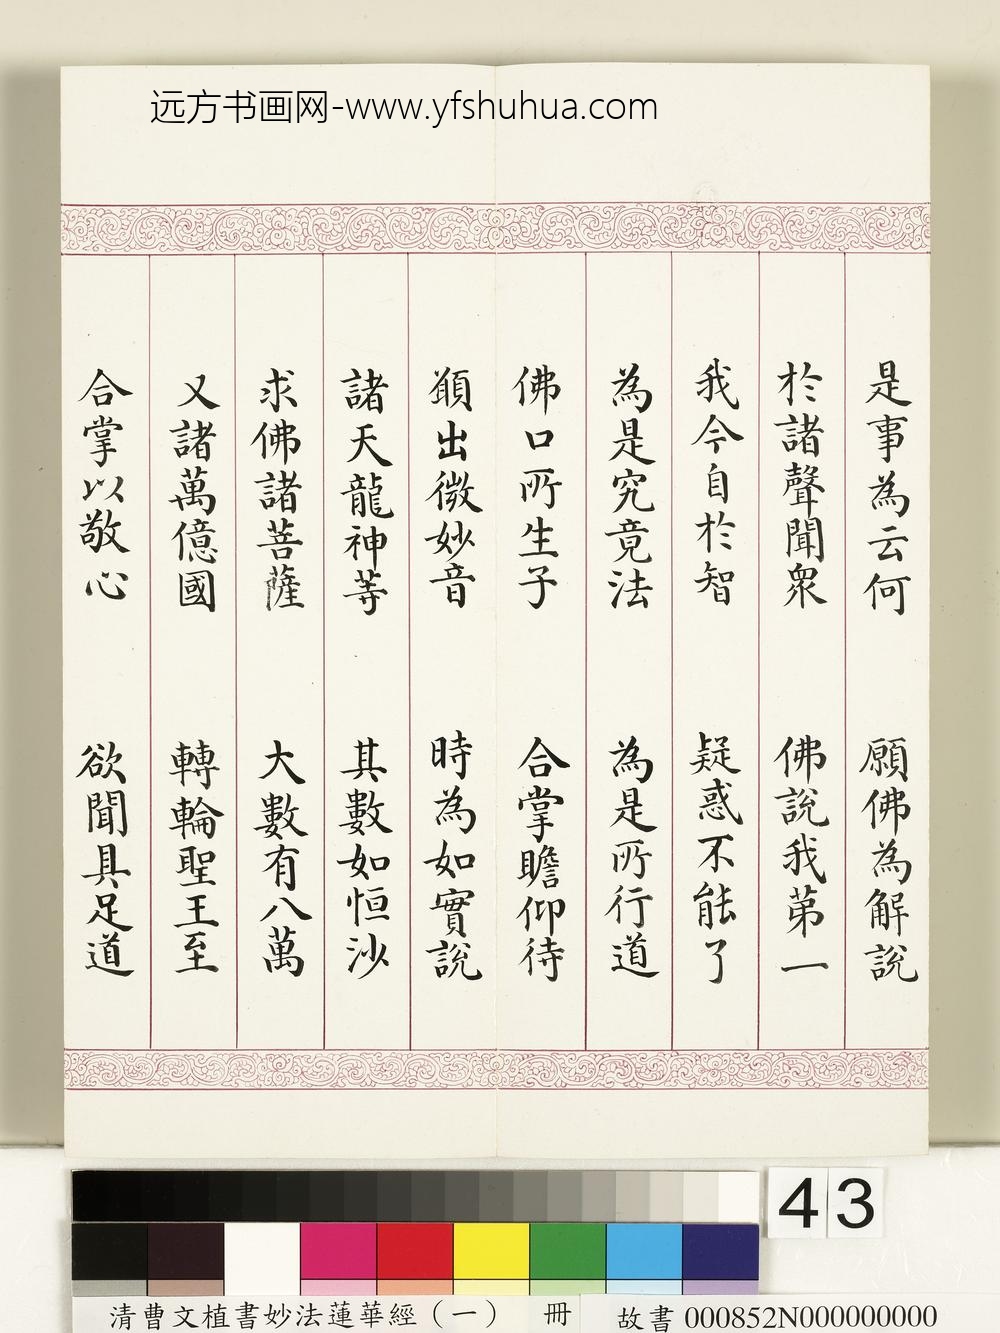 远方书画网-www.yfshuhua.com
是事為云何 願佛為解說
於諸聲聞眾 佛說我第一
我今自於智 疑惑不能了
為是究竟法 為是所行道
佛口所生子 合掌瞻仰待
願出微妙音 時為如實說
諸天龍神等 其數如恒沙
求佛諸菩薩 大數有八萬
又諸萬億國 轉輪聖王至
合掌以敬心 欲聞具足道
43
清曹文植書妙法蓮華經（一） 冊 故書000852N000000000